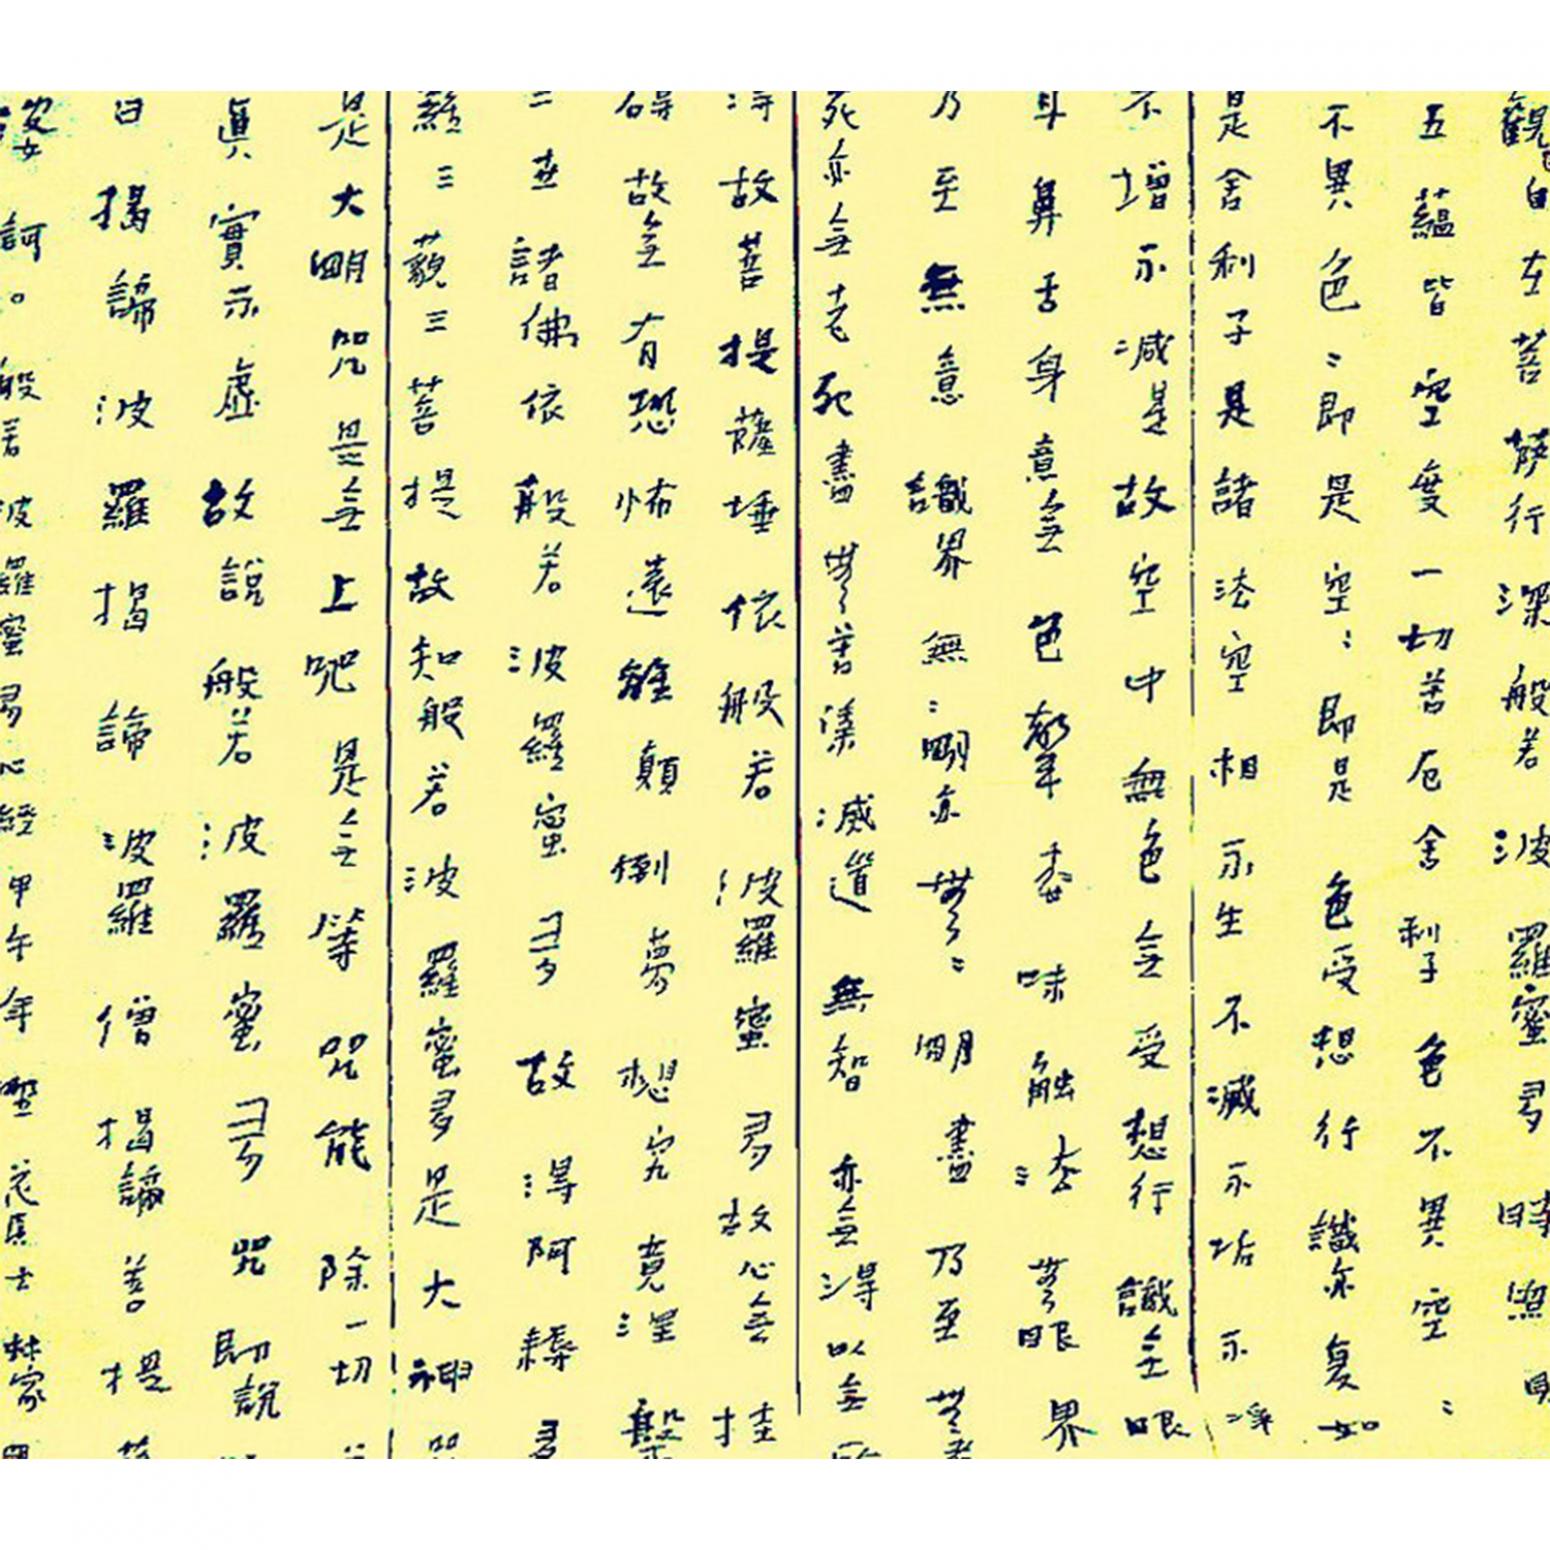 觀自在菩薩行深般若波羅蜜多時照
五蘊皆空度一切苦厄舍利子色不異空:
不異色:即是空:即是色受想行識亦复如
是舍利子是諸法空相不生不滅不垢不淨
不增不減是故空中無色无受想行識无眼
耳鼻舌身意无色聲香味觸法無眼界
乃至無意識界無:明亦無:明盡乃至無老
死亦无老死盡無苦集滅道無智亦无得以无所
得故菩提薩埵依般若波羅蜜多故心无挂
礙故无有恐怖遠離顛倒夢想究竟涅槃
三世諸佛依般若波羅蜜多故得阿耨多
羅三藐三菩提故知般若波羅蜜多是大神咒
是大明咒是无上咒是无等咒能除一切
真實不虛故說般若波羅蜜多咒即說
曰揭諦波羅揭諦波羅僧揭諦菩提
婆訶。般若波羅蜜多心經甲午年